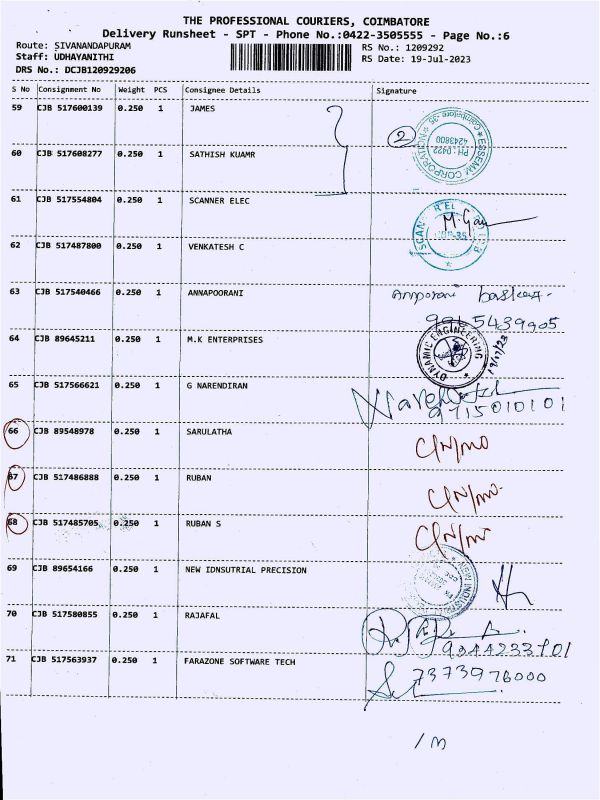 THE PROFESSIONAL COURIERS, COIMBATORE
Delivery Runsheet - SPT - Phone No.:0422-3505555 - Page No.:6
Route: SIVANANDAPURAM RS No.: 1209292
Staff: UDHAYANITHI RS Date: 19-Jul-2023
DRS No.: DCJB120929206
S No Consignment No Weight PCS Consignee Details Signature
59 CJB 517600139 0.250 1 JAMES
2
ESSEMM CORPORATION
Coimbatore-35
PH: 0422
4243800
60 CJB 517608277 0.250 1 SATHISH KUAMR
61 CJB 517554804 0.250 1 SCANNER ELEC
62 CJB 517487800 0.250 1 VENKATESH C
63 CJB 517540466 0.250 1 ANNAPOORANI
64 CJB 89645211 0.250 1 M.K ENTERPRISES
DYNAMIC ENGINEERING
19/7/23
65 CJB 517566621 0.250 1 G NARENDIRAN
9715010101
66 CJB 89548978 0.250 1 SARULATHA C/N/MO
67 CJB 517486888 0.250 1 RUBAN C/N/MO
68 CJB 517485705 0.250 1 RUBAN S
69 CJB 89654166 0.250 1 NEW IDNSUTRIAL PRECISION
70 CJB 517580855 0.250 1 RAJAFAL
71 CJB 517563937 0.250 1 FARAZONE SOFTWARE TECH 7373976000